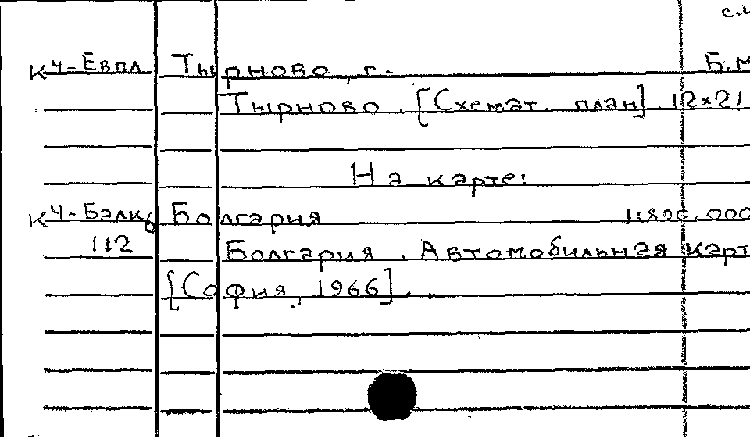 см
К4-Евпл Тырново, г. Б.м
Тырново. [Схемат. план] 12×21
На карте:
К4-Балк. Болгария 1:800.000
112 Болгария. Автомобильная карт
[София, 1966].